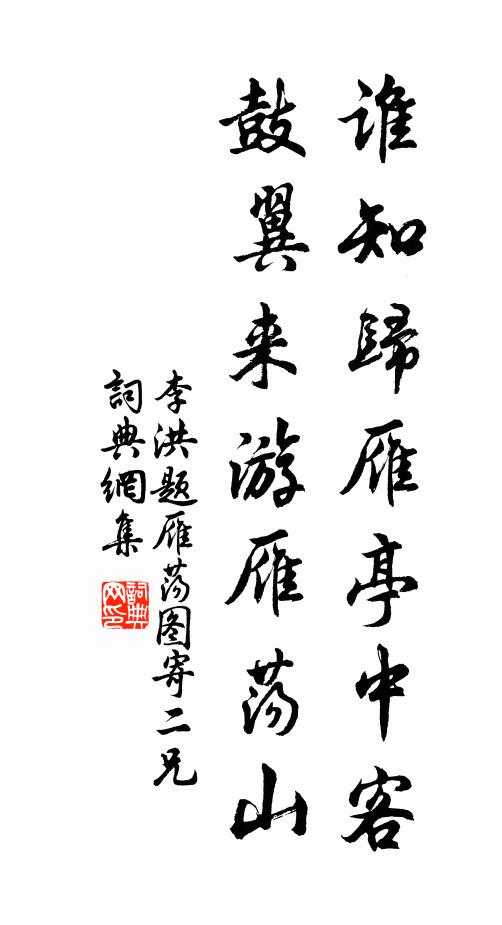 谁知歸雁亭中客
鼓翼来游雁荡山
李洪题雁荡图寄二兄
詞典網集
詞典网印